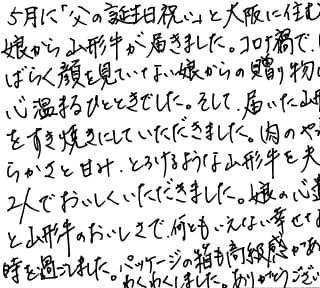 5月に「父の誕生日祝い」と大阪に住む
娘から山形牛が届きました。コロナ禍で、し
ばらく顔を見ていない娘からの贈り物に
心温まるひとときでした。そして、届いた山形
をすき焼きにしていただきました。肉のや
らかさと甘み、とろけるような山形牛を夫
2人でおいしくいただきました。娘の心遣
と山形牛のおいしさで、何ともいえない幸せな
時を過ごしました。パッケージの箱も高級感があ
わくわくしました。ありがとうござい